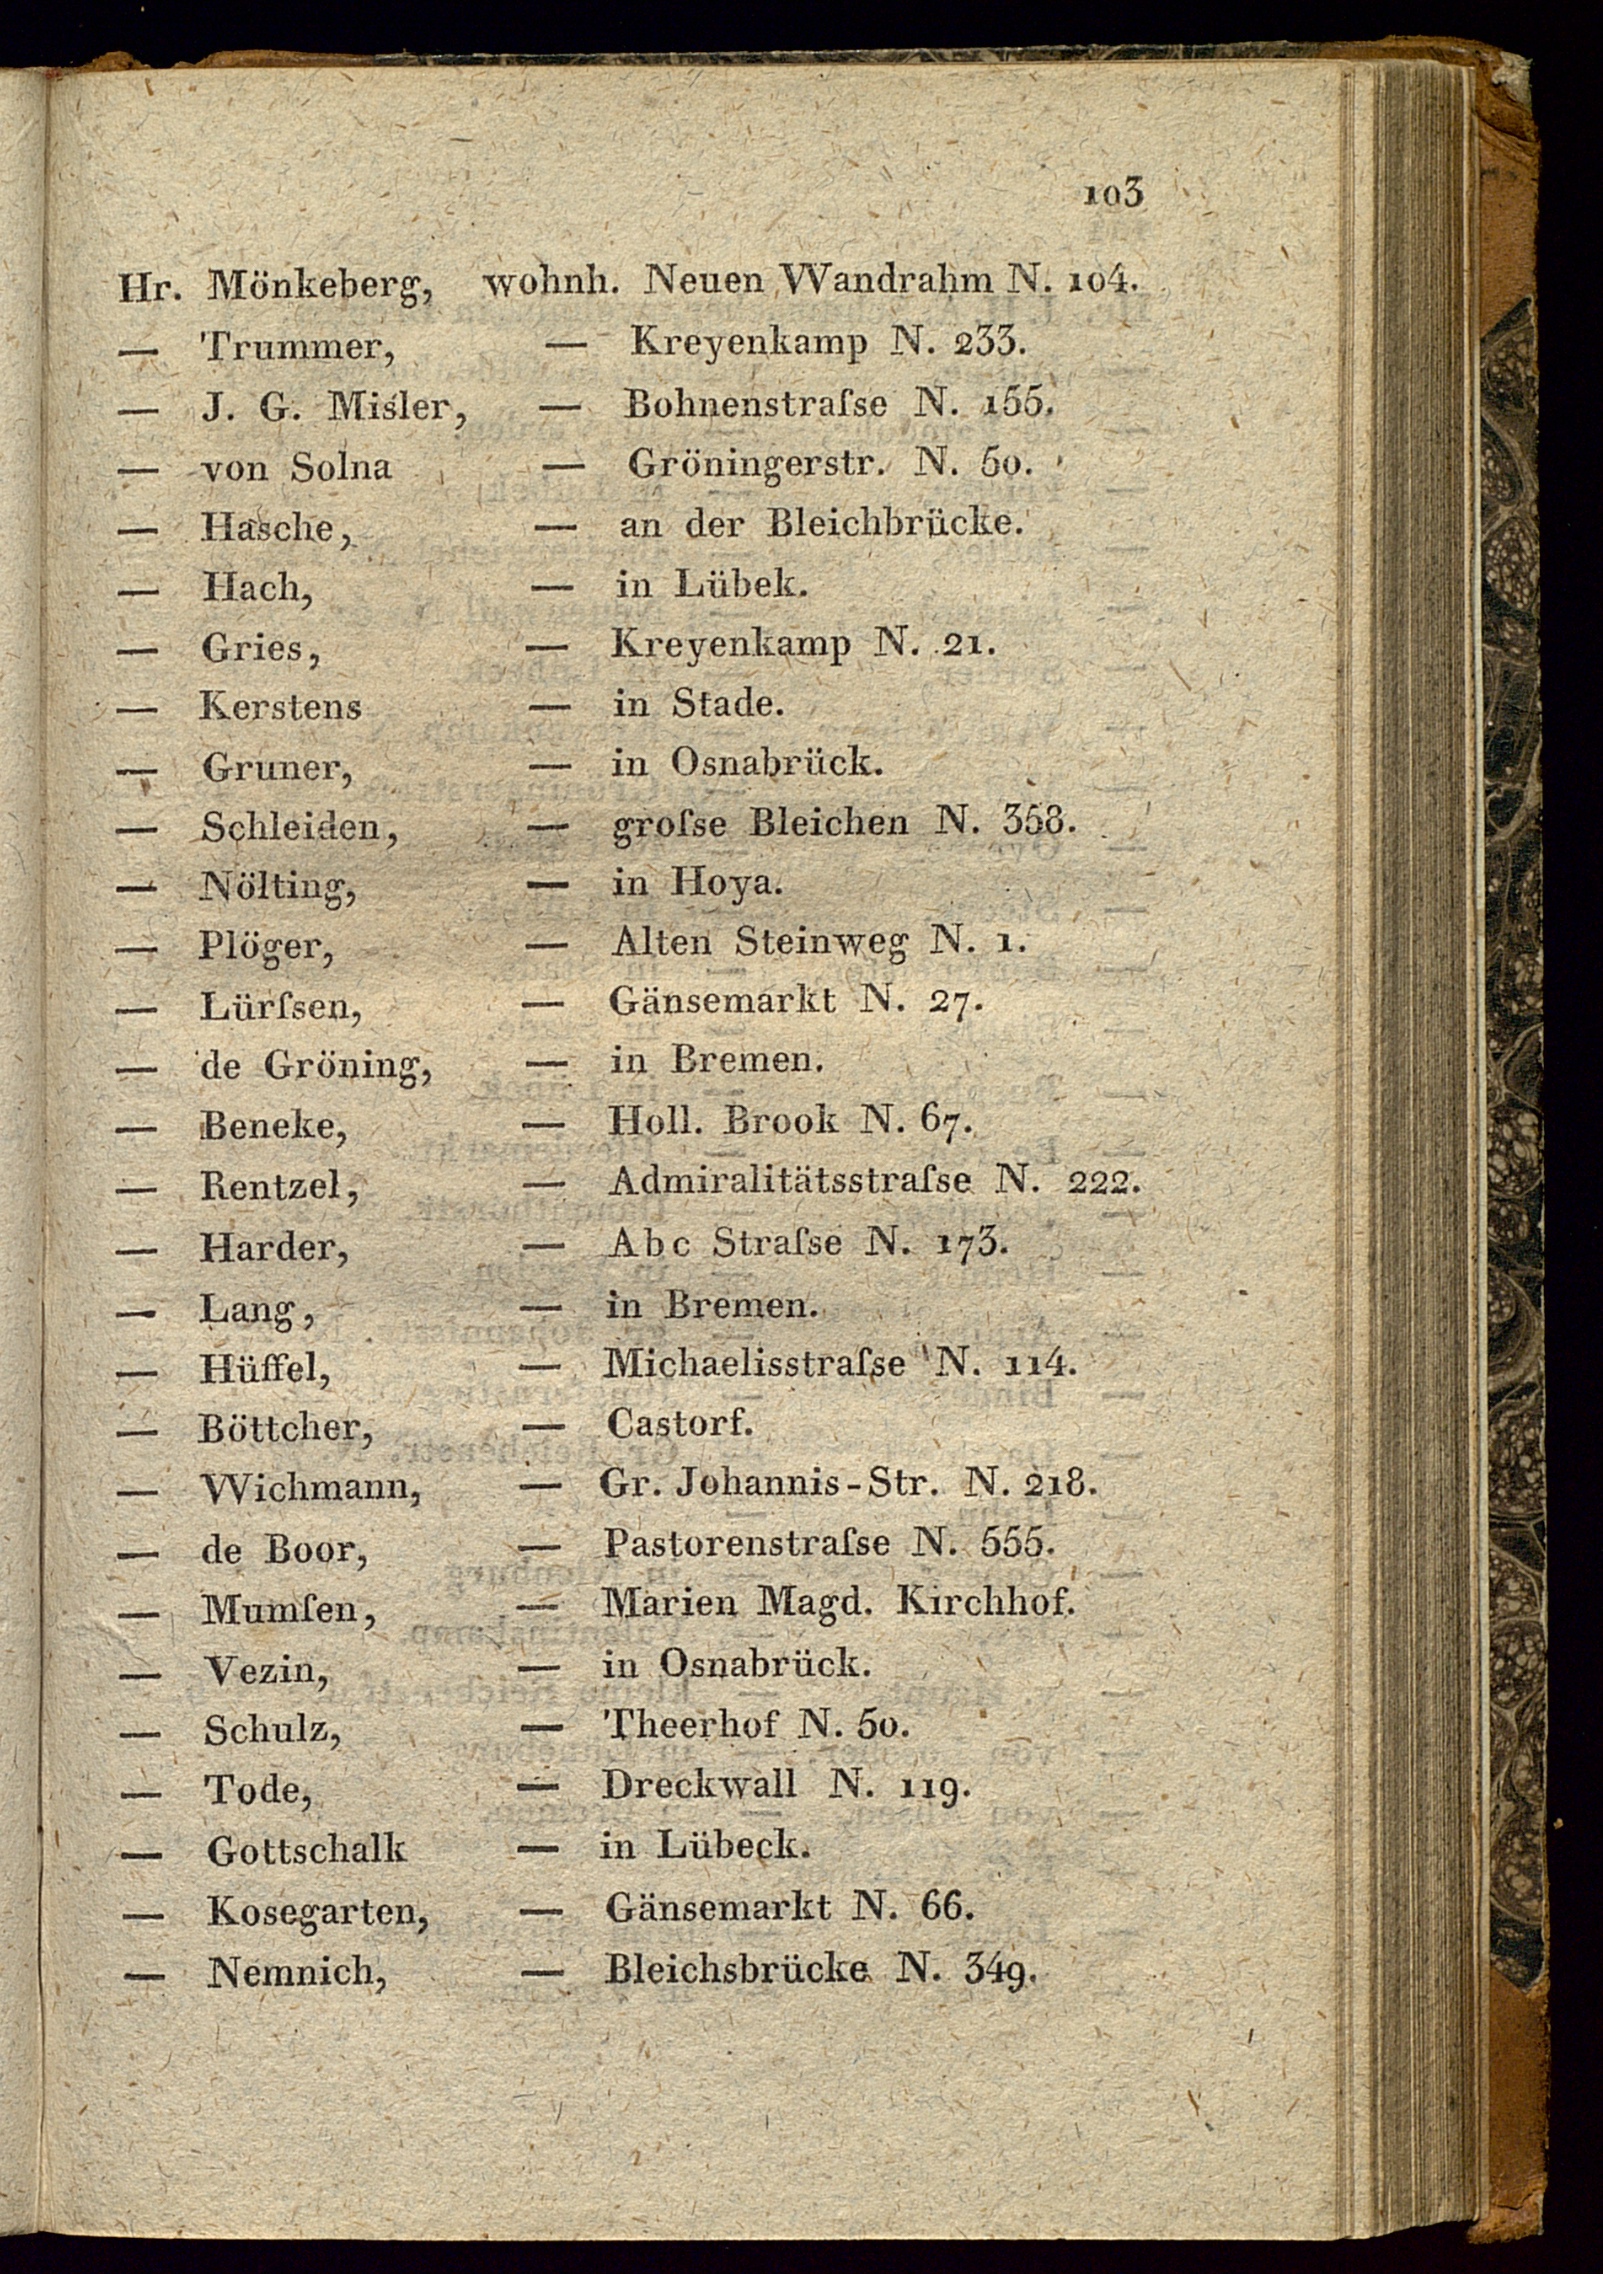 103
Hr. Mönkeberg, wohnh. Neuen Wandrahm N. 104.
— Trummer, — Kreyenkamp N. 233.
— J. G. Misler, — Bohnenstraſse N. 155.
— von Solna — Gröningerstr. N. 50.
— Hasche, — an der Bleichbrücke.
— Hach, — in Lübek.
— Gries, — Kreyenkamp N. 21.
— Kerstens — in Stade.
— Gruner, — in Osnabrück.
— Schleiden, — groſse Bleichen N. 358.
— Nölting, — in Hoya.
— Plöger, — Alten Steinweg N. 1.
— Lürſsen, — Gänsemarkt N. 27.
— de Gröning, — in Bremen.
— Beneke, — Holl. Brook N. 67.
— Rentzel, — Admiralitätsstraſse N. 222.
— Harder, — Abc Straſse N. 173.
— Lang, — in Bremen.
— Hüffel, — Michaelisstraſse N. 114.
— Böttcher, — Castorf.
— Wichmann, — Gr. Johannis-Str. N. 218.
— de Boor, — Pastorenstraſse N. 555.
— Mumſen, — Marien Magd. Kirchhof.
— Vezin, — in Osnabrück.
— Schulz, — Theerhof N. 50.
— Tode, — Dreckwall N. 119.
— Gottschalk — in Lübeck.
— Kosegarten, — Gänsemarkt N. 66.
— Nemnich, — Bleichsbrücke N. 349.